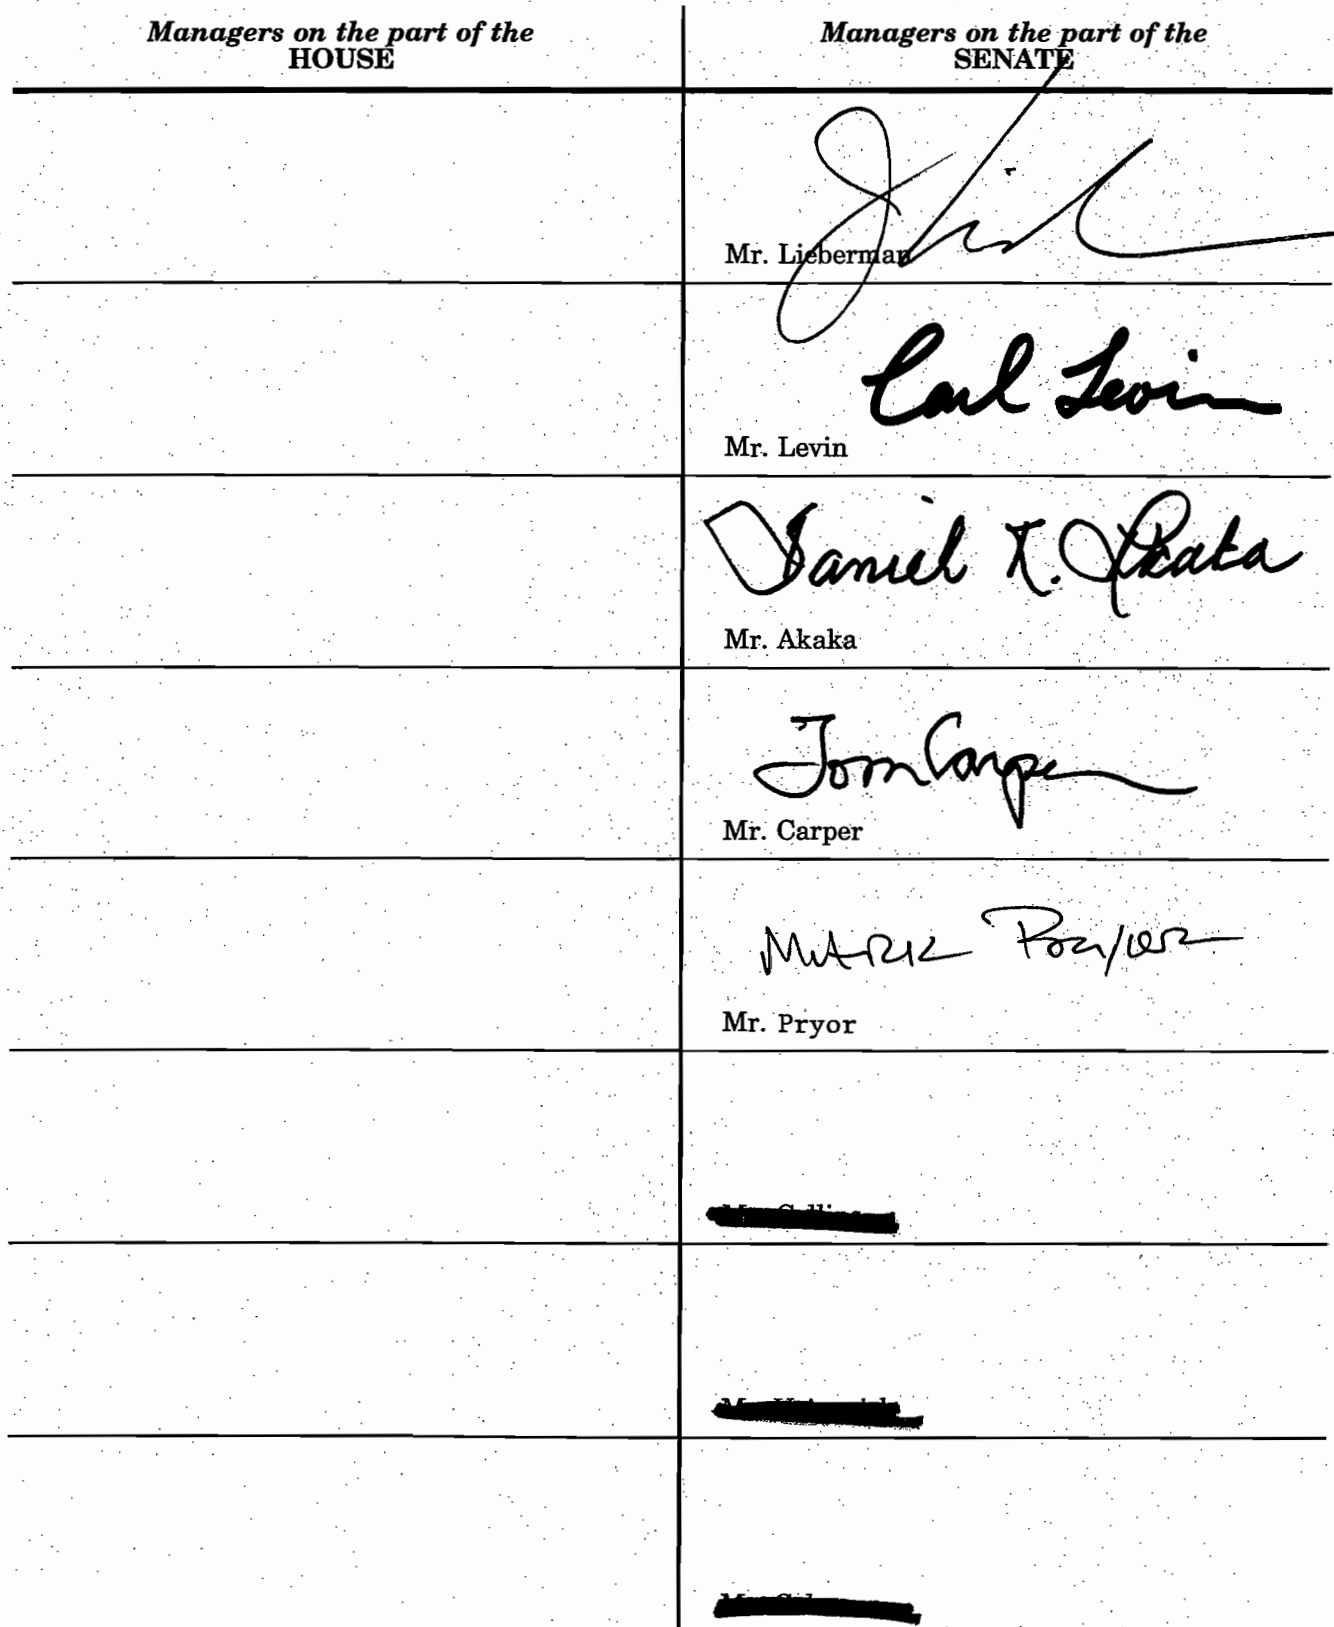 Managers on the part of the
HOUSE
Managers on the part of the
SENATE
Mr. Lieberman
Carl Levin
Mr. Levin
Daniel K. Akaka
Mr. Akaka
Tom Carper
Mr. Carper
MARK PRYOR
Mr. Pryor